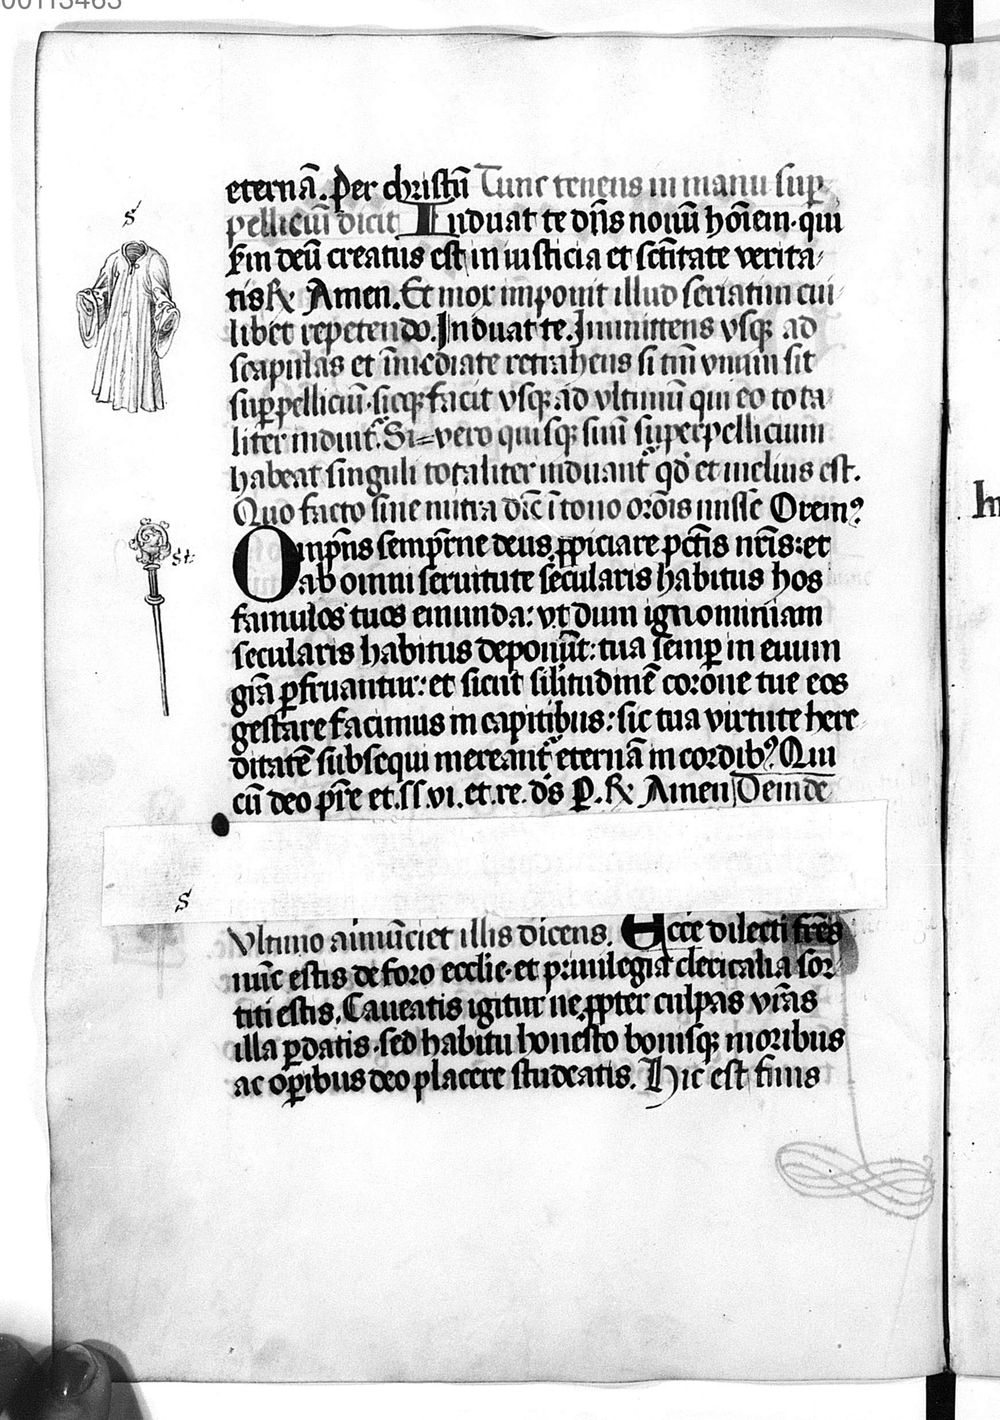 00113463
eternā. Per christū Tunc tenens in manu sup̱
pelliciū dicit Induat te dn̄s nouū hoīem· qui
scḏm deū creatus est in iusticia et sct̄itate verita
tis ℟ Amen. Et mox imponit illud seriatim cui
libet repetendo. Induat te. Inmittens vsqꝫ ad
scapulas et īmediate retrahens si tm̄ vnum sit
sup̱pelliciū· sicqꝫ facit vsqꝫ ad vltimū qui eo tota
liter induit᷑. Si=vero quisqꝫ suū superpellicium
habeat singuli totaliter induant᷑ qđ et melius est.
Quo facto sine mitra dic̄ ī tono orōis misse Oremꝰ
Omp̄ns semp̄rne deus ꝓpiciare pctīs nr̄is: et
ab omni seruitute secularis habitus hos
famulos tuos emunda: vt dum ignominiam
secularis habitus deponūt: tua semꝑ in euum
grā ꝑfruantur: et sicut silītudinē corōne tue eos
gestare facimus in capitibus: sic tua virtute here
ditatē subsequi mereant᷑ eternā in cordibꝰ. Qui
cū deo pr̄e et. ss. vi. et. re. ds̄ P. ℟ Amen Deinde
S
Vltimo annūciet illis dicens. Ecce dilecti frēs
nūc estis de foro ecclīe· et priuilegia clericalia sor
titi estis. Caueatis igitur ne ꝓpter culpas vr̄as
illa ꝑdatis· sed habitu honesto bonisqꝫ moribus
ac oꝑibus deo placere studeatis. Hic est finis
S
St: